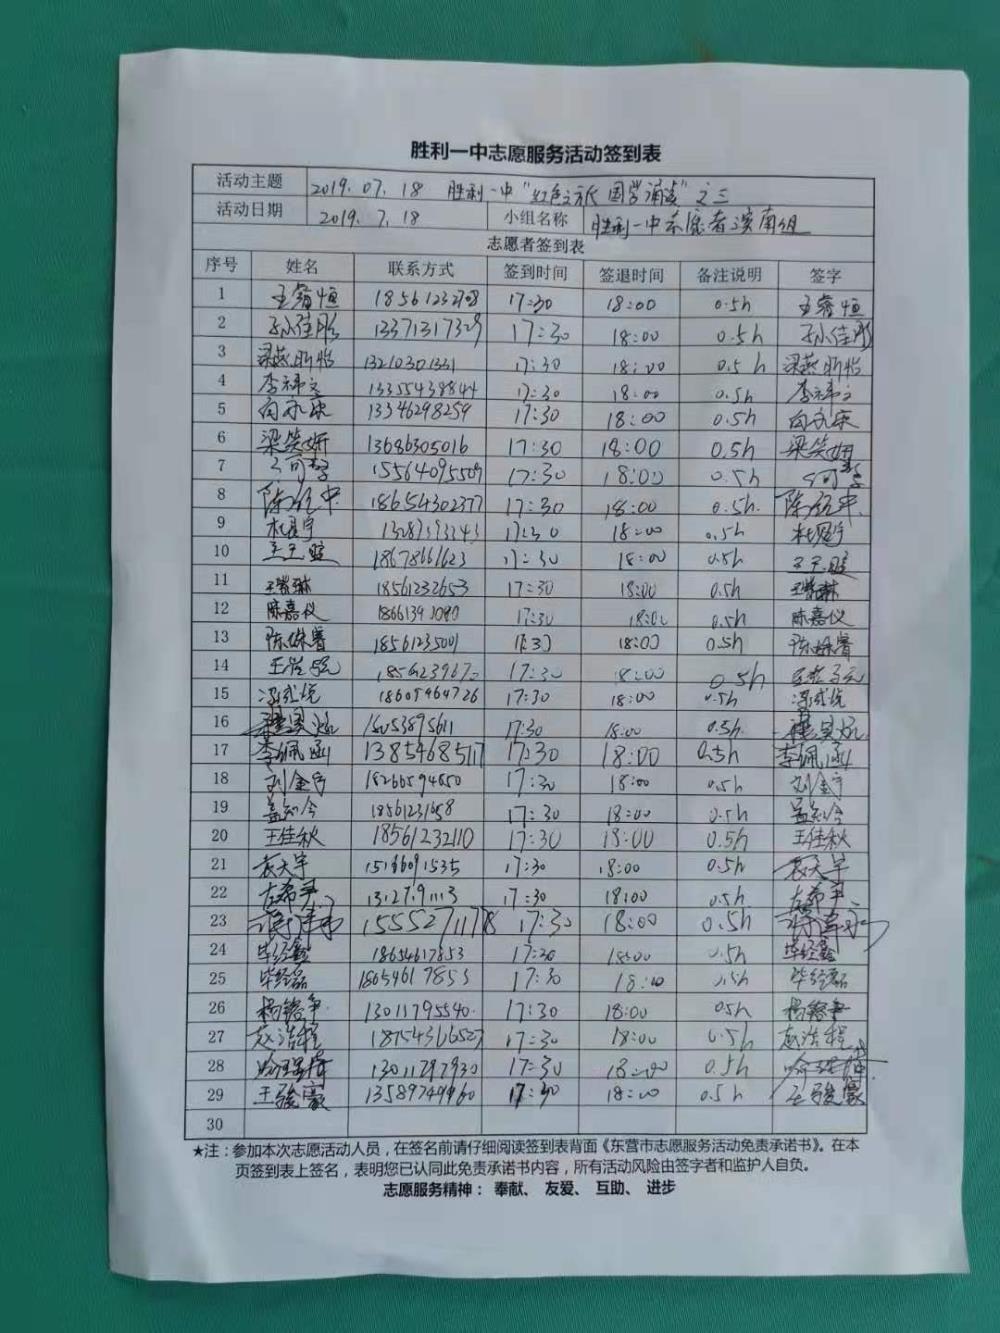 胜利一中志愿服务活动签到表
活动主题 2019.07.18 胜利一中"红色文化 国学诵读"之三
活动日期 2019.7.18 小组名称 胜利一中志愿者滨南组
志愿者签到表
序号 姓名 联系方式 签到时间 签退时间 备注说明 签字
1 王睿恒 17:30 18:00 0.5h 王睿恒
2 孙佳彤 13371317329 17:30 18:00 0.5h 孙佳彤
3 梁燕昕怡 13210301331 17:30 18:00 0.5h 梁燕昕怡
4 李祎文 13355439844 17:30 18:00 0.5h 李祎文
5 向永康 13346298259 17:30 18:00 0.5h 向永康
6 梁笑妍 13686305016 17:30 18:00 0.5h 梁笑妍
7 15564095509 17:30 18:00 0.5h
8 18654302377 17:30 18:00 0.5h
9 17:30 18:00 0.5h
10 18678661623 17:30 18:00 0.5h
11 18561232653 17:30 18:00 0.5h
12 陈嘉仪 17:30 18:00 0.5h 陈嘉仪
13 陈姝睿 18561235001 17:30 18:00 0.5h 陈姝睿
14 17:30 18:00 0.5h
15 18609464726 17:30 18:00 0.5h
16 17:30 18:00 0.5h
17 李佩函 13854685117 17:30 18:00 0.5h 李佩函
18 刘金宇 18266594650 17:30 18:00 0.5h 刘金宇
19 孟知今 17:30 18:00 0.5h 孟知今
20 王佳秋 18561232110 17:30 18:00 0.5h 王佳秋
21 袁天宇 15166091535 17:30 18:00 0.5h 袁天宇
22 左希尹 17:30 18:00 0.5h
23 15552711178 17:30 18:00 0.5h
24 毕经鑫 18654617853 17:30 18:00 0.5h 毕经鑫
25 毕经磊 18654617853 17:30 18:00 0.5h 毕经磊
26 13011795540 17:30 18:00 0.5h
27 赵浩程 18754366527 17:30 18:00 0.5h 赵浩程
28 13011797930 17:30 18:00 0.5h
29 王骏豪 13589749960 17:30 18:00 0.5h 王骏豪
30
★注：参加本次志愿活动人员，在签名前请仔细阅读签到表背面《东营市志愿服务活动免责承诺书》。在本
页签到表上签名，表明您已认同此免责承诺书内容，所有活动风险由签字者和监护人自负。
志愿服务精神： 奉献、 友爱、 互助、 进步